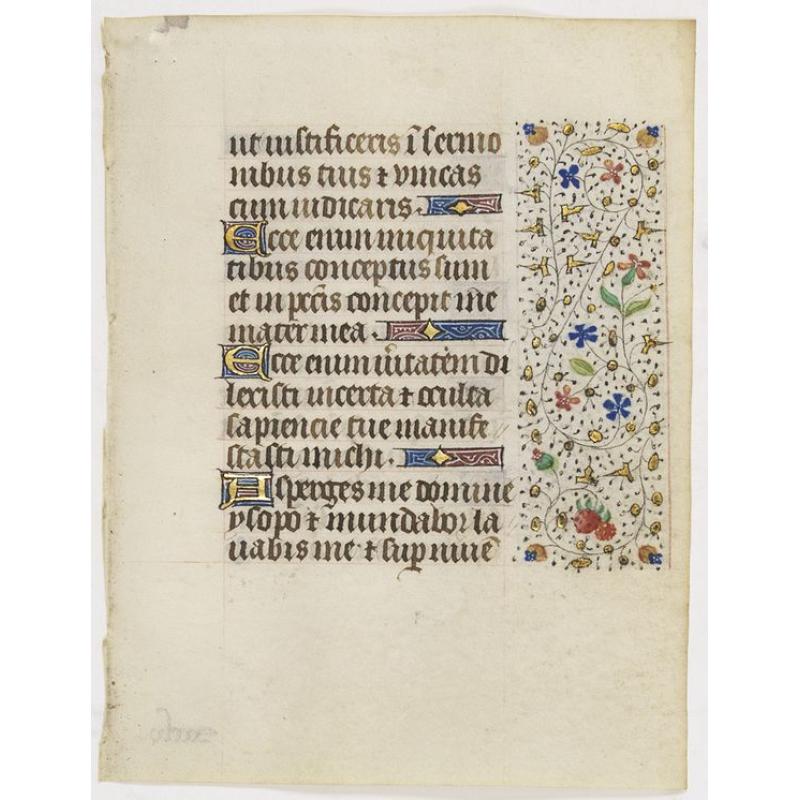 ut iustificeris ī sermo
nibus tuis ⁊ vincas
cum iudicaris.
Ecce enim iniquita
tibus conceptus sum
et in pctīs concepit me
mater mea.
Ecce enim ūitatem di
lexisti incerta ⁊ occulta
sapiencie tue manife
stasti michi.
Asperges me domine
ysopo ⁊ mundabor la
uabis me ⁊ suꝑ niuē